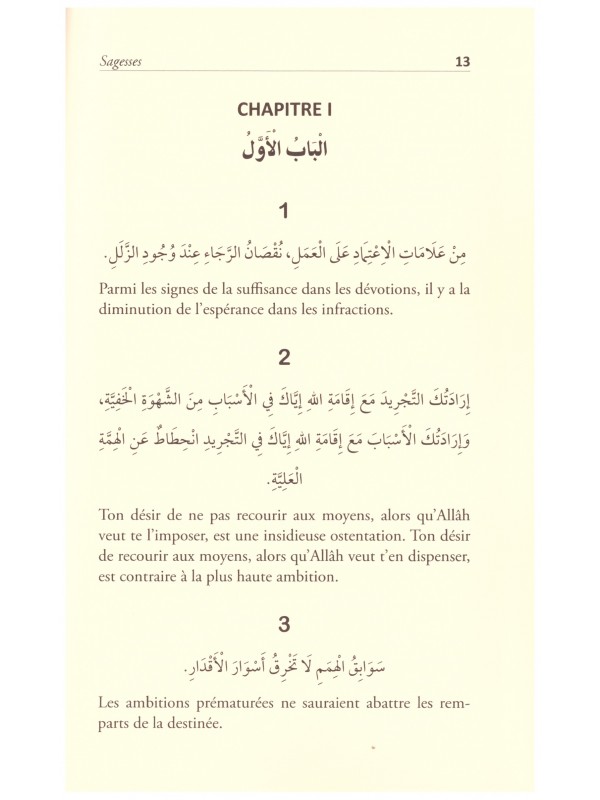 Sagesses 13
CHAPITRE I
الْبَابُ الْأَوَّلُ
1
مِنْ عَلَامَاتِ الْاِعْتِمَادِ عَلَى الْعَمَلِ، نُقْصَانُ الرَّجَاءِ عِنْدَ وُجُودِ الزَّلَلِ.
Parmi les signes de la suffisance dans les dévotions, il y a la
diminution de l’espérance dans les infractions.
2
إِرَادَتُكَ التَّجْرِيدَ مَعَ إِقَامَةِ اللهِ إِيَّاكَ فِي الْأَسْبَابِ مِنَ الشَّهْوَةِ الْخَفِيَّةِ،
وَإِرَادَتُكَ الْأَسْبَابَ مَعَ إِقَامَةِ اللهِ إِيَّاكَ فِي التَّجْرِيدِ انْحِطَاطٌ عَنِ الْهِمَّةِ
الْعَلِيَّةِ.
Ton désir de ne pas recourir aux moyens, alors qu’Allâh
veut te l’imposer, est une insidieuse ostentation. Ton désir
de recourir aux moyens, alors qu’Allâh veut t’en dispenser,
est contraire à la plus haute ambition.
3
سَوَابِقُ الْهِمَمِ لَا تَخْرِقُ أَسْوَارَ الْأَقْدَارِ.
Les ambitions prématurées ne sauraient abattre les rem-
parts de la destinée.